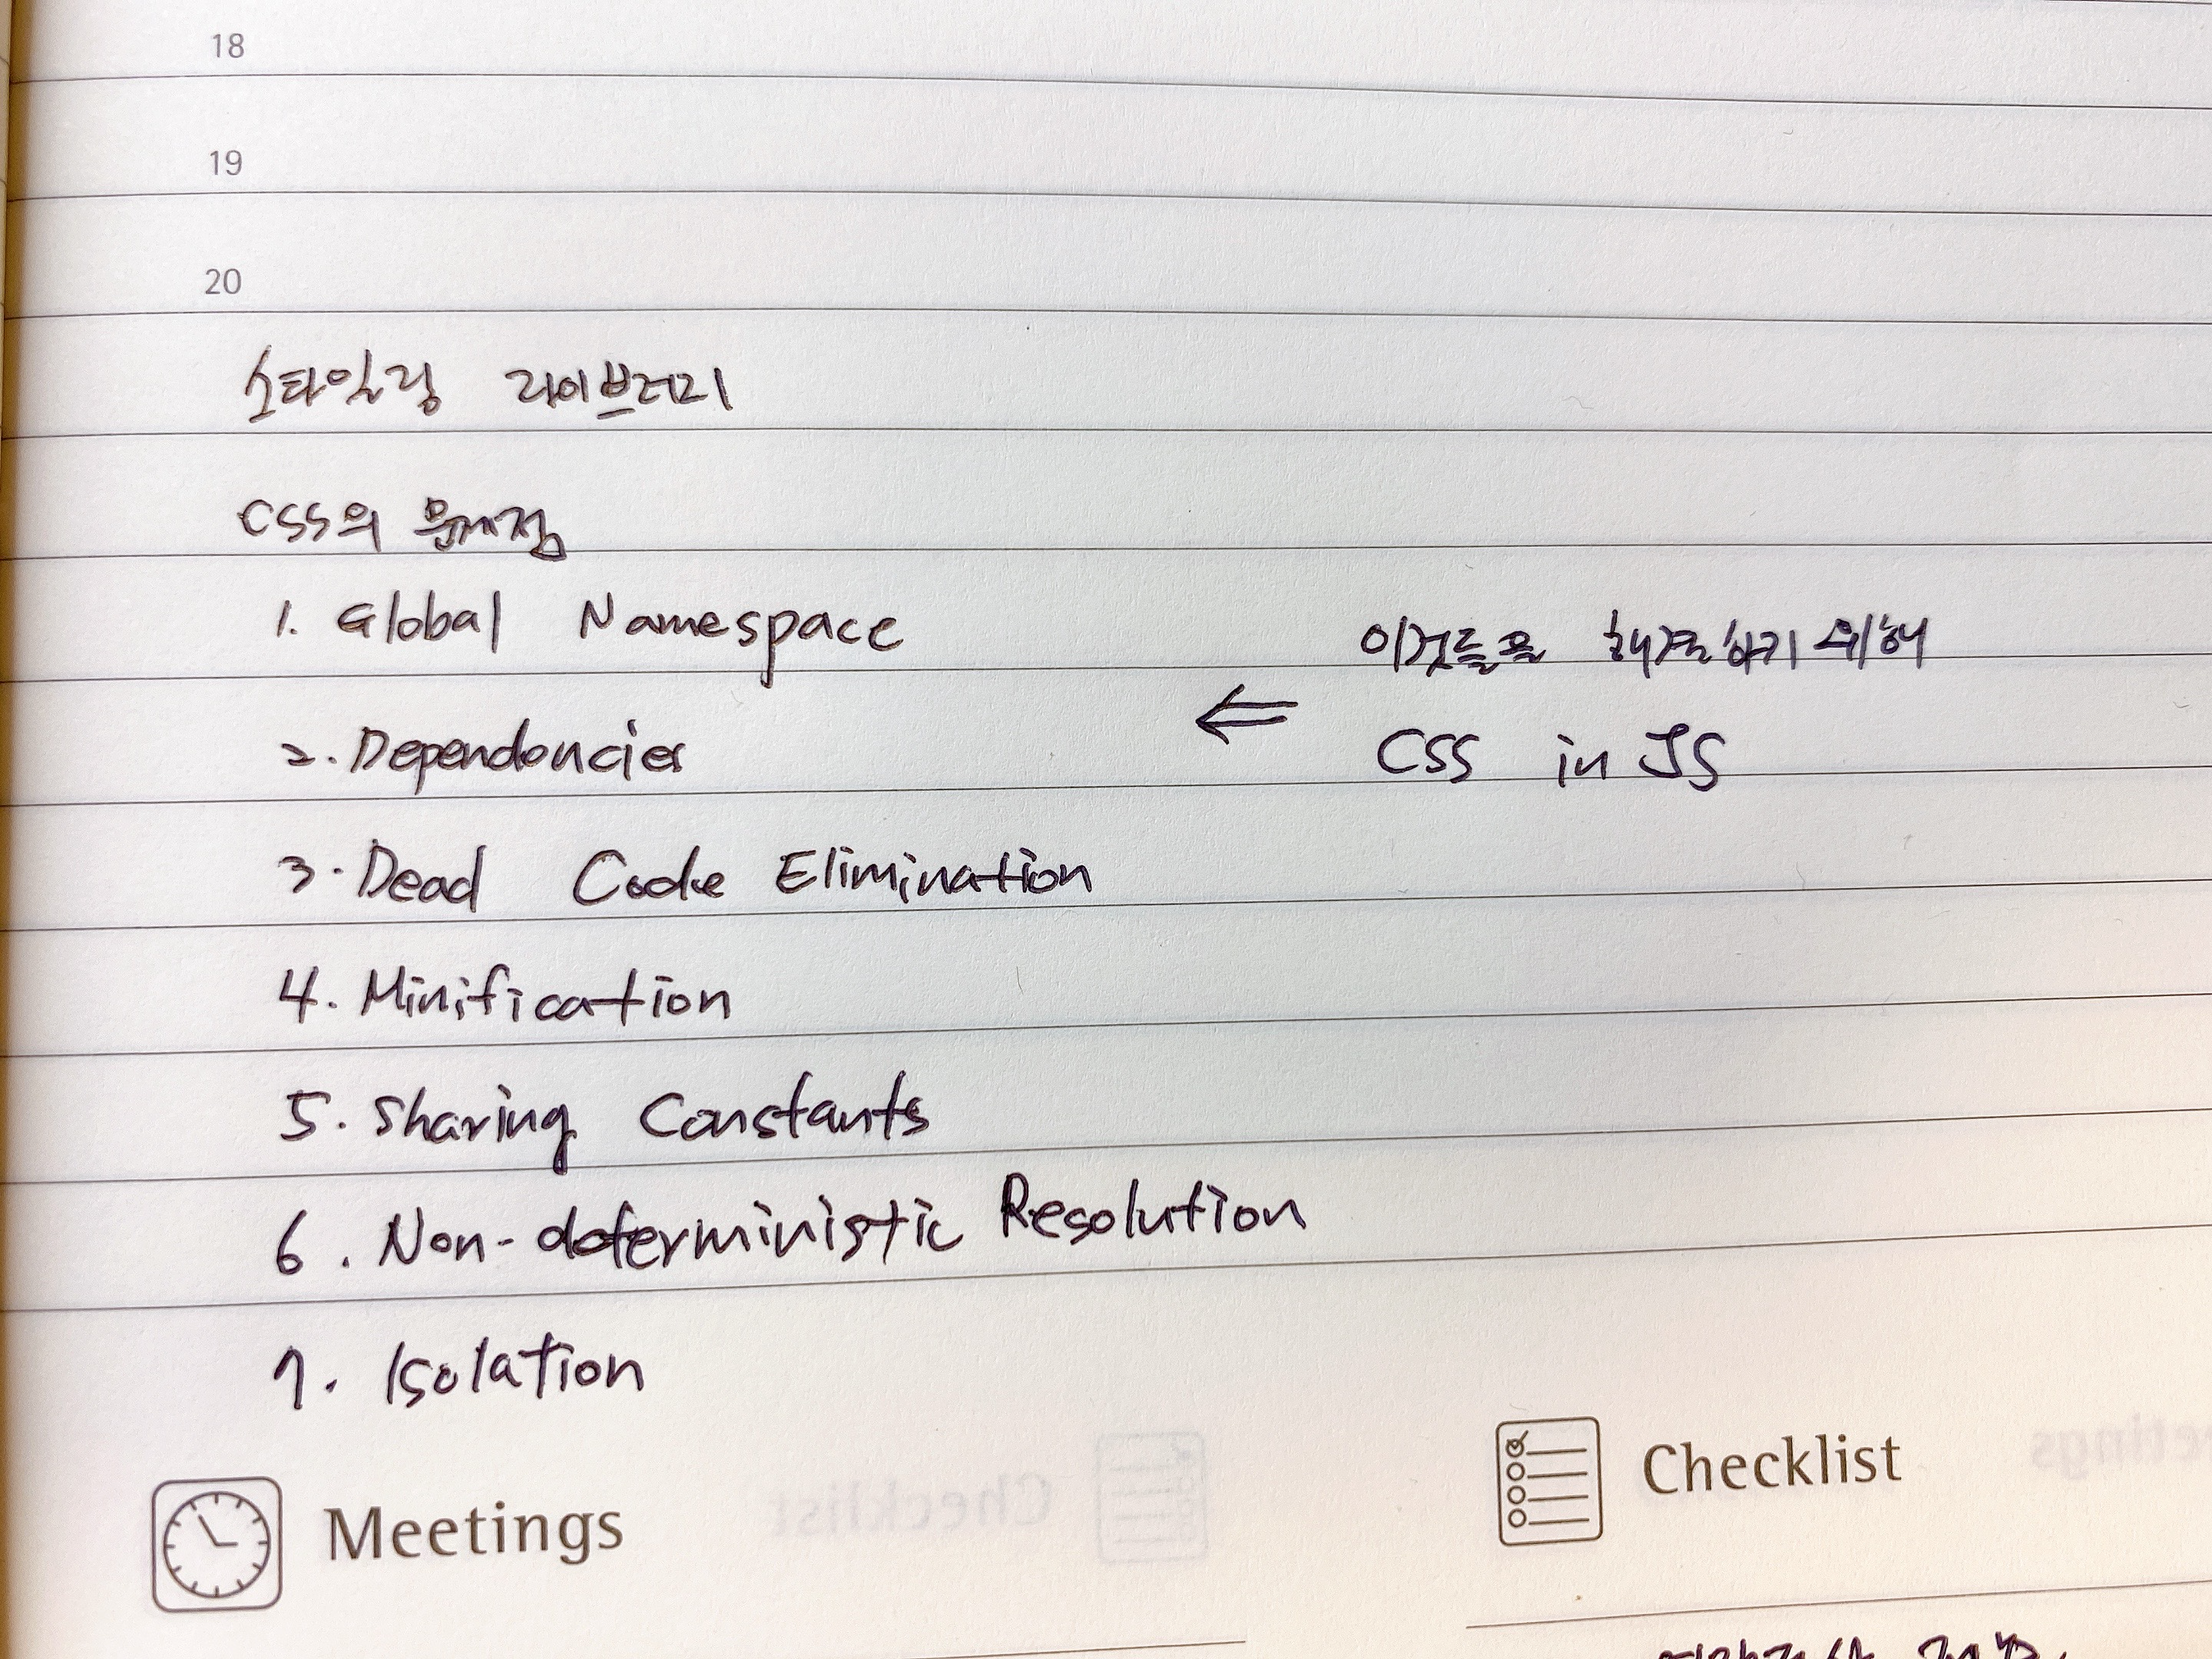 18
19
20
스타일링 라이브러리
CSS의 문제점
1. Global Namespace
이것들을 해결하기 위해
⇐
2. Dependencies
CSS in JS
3. Dead Code Elimination
4. Minification
5. Sharing Constants
6. Non-deterministic Resolution
7. Isolation
Meetings
Checklist